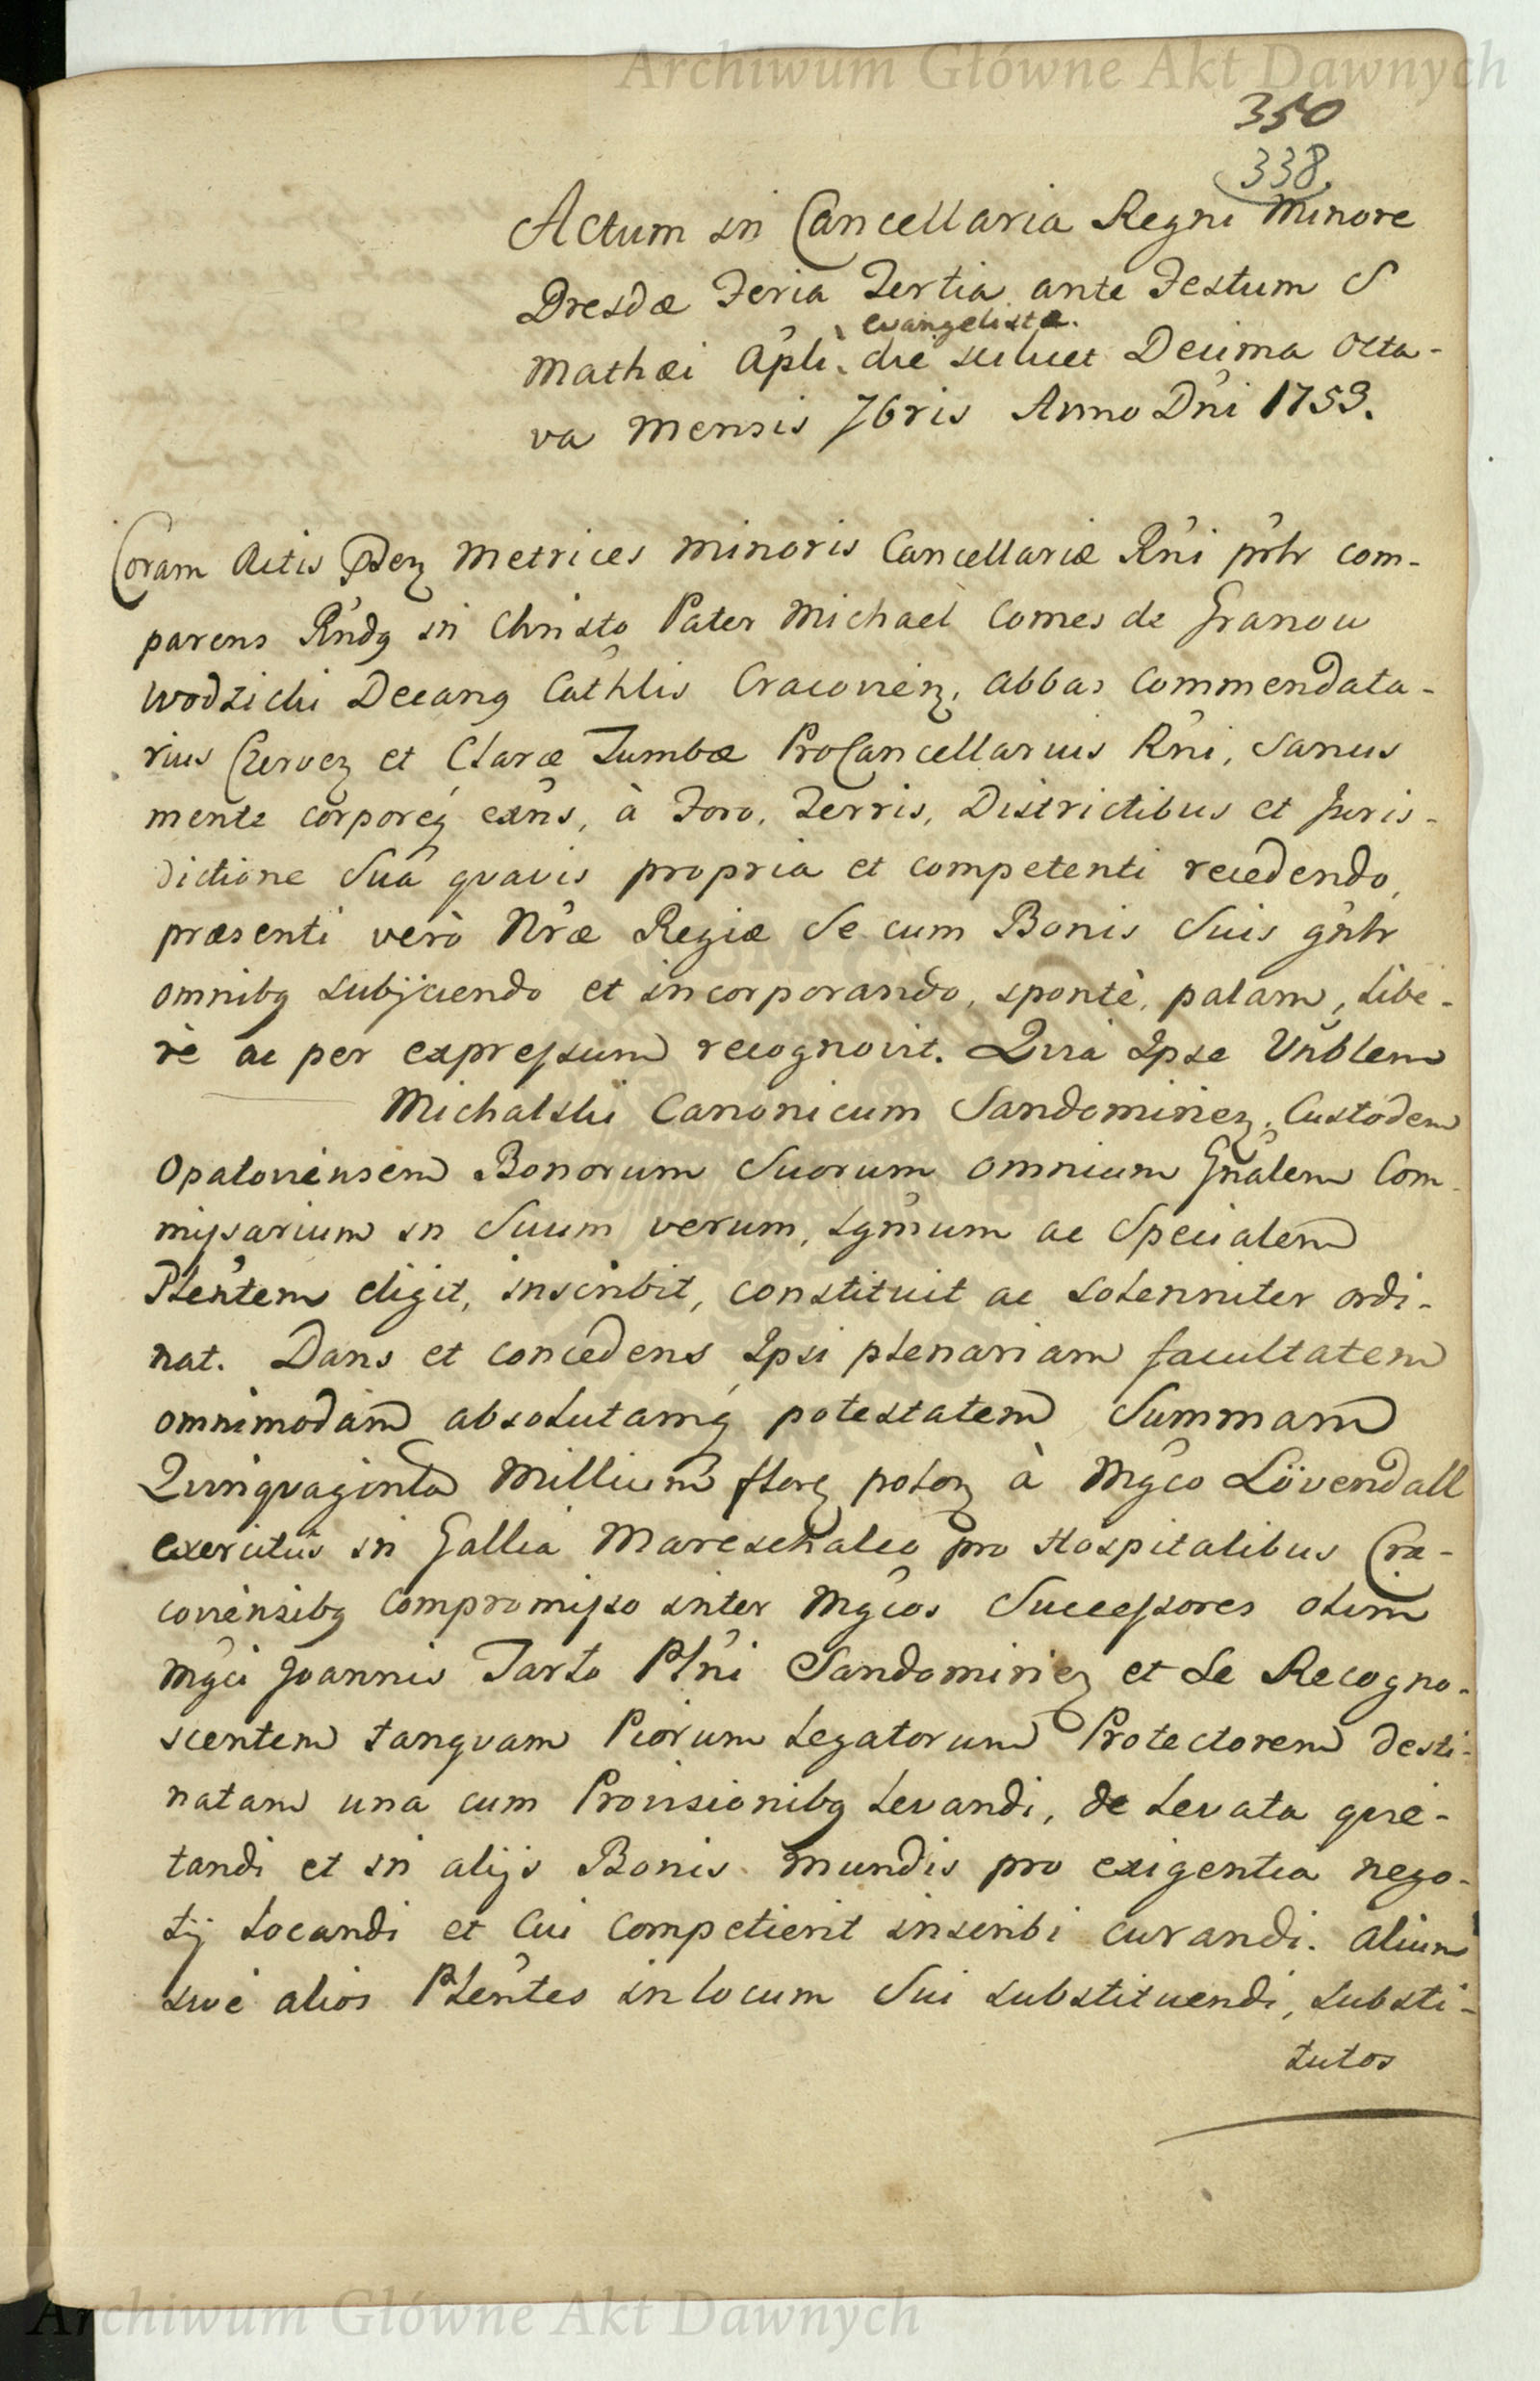 Archiwum Główne Akt Dawnych
350
338.
Actum in Cancellaria Regni Minore
Dresdæ Feria Tertia ante Festum S
evangelistæ.
Mathæi Apli, die scilicet Decima Octa-
va Mensis 7bris Anno Dni 1753.
Coram Actis Metrices Minoris Cancellariæ Rni pnlr com-
parens Rndq in Christo Pater Michael Comes de Granow
Wodzicki Decanq Cathlis Cracovien, Abbas Commendata-
rius Czervez et Claræ Tumbæ ProCancellarius Rni, Sanus
mente corporeq exns, à Foro, Terris, Districtibus et Juris-
dictione Suâ quavis propria et competenti recedendo,
præsenti verò Nræ Regiæ Se cum Bonis Suis gnlr
omnibq subjiciendo et incorporando, spontè, palam, libe-
rè ac per expressum recognovit. Quia Ipse Vnblem
Michalski Canonicum Sandomirien, Custodem
Opatoviensem Bonorum Suorum omnium Gnalem Com-
missarium in Suum verum, lgmum ac Specialem
Plentem eligit, inscribit, constituit ac solenniter ordi-
nat. Dans et concedens Ipsi plenariam facultatem
omnimodam absolutamq potestatem Summam
Quinquaginta Millium flor polon à Mgco Lövendall
exercitus in Gallia Mareschalco pro Hospitalibus Cra-
coviensibq compromisso inter Mgcos Successores olim
Mgci Joannis Tarło Plni Sandomirien et Se Recogno-
scentem tanquam Piorum Legatorum Protectorem desti-
natam una cum Provisionibq levandi, de levata quie-
tandi et in alijs Bonis mundis pro exigentia nego-
tij locandi et cui competierit inscribi curandi. Alium
sive alios Plentes in locum Sui substituendi, substi-
tutos
Archiwum Główne Akt Dawnych